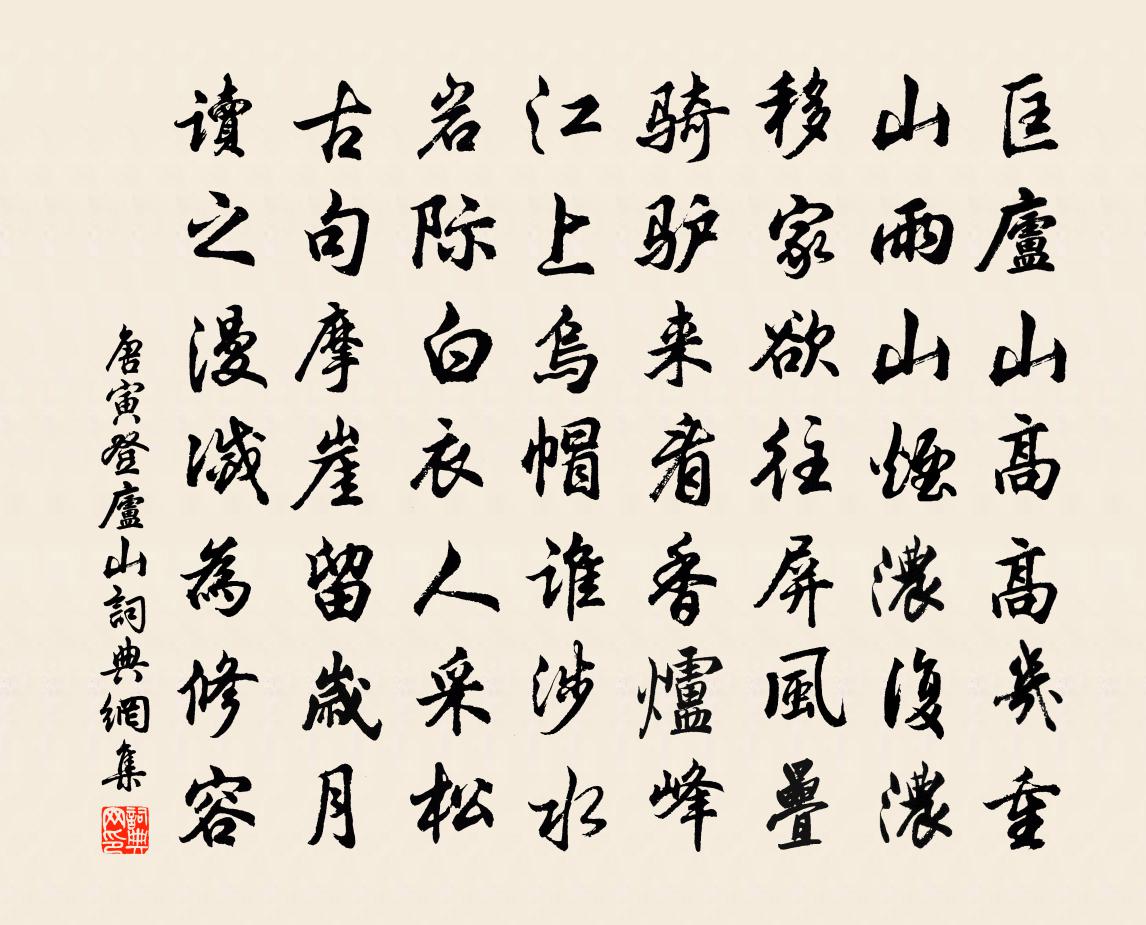 匡廬山高高幾重
山雨山煙濃復濃
移家欲往屏風疊
骑驴来看香爐峰
江上烏帽誰涉水
岩际白衣人采松
古句摩崖留歲月
讀之漫滅為修容
唐寅登廬山詞典網集
詞典網印